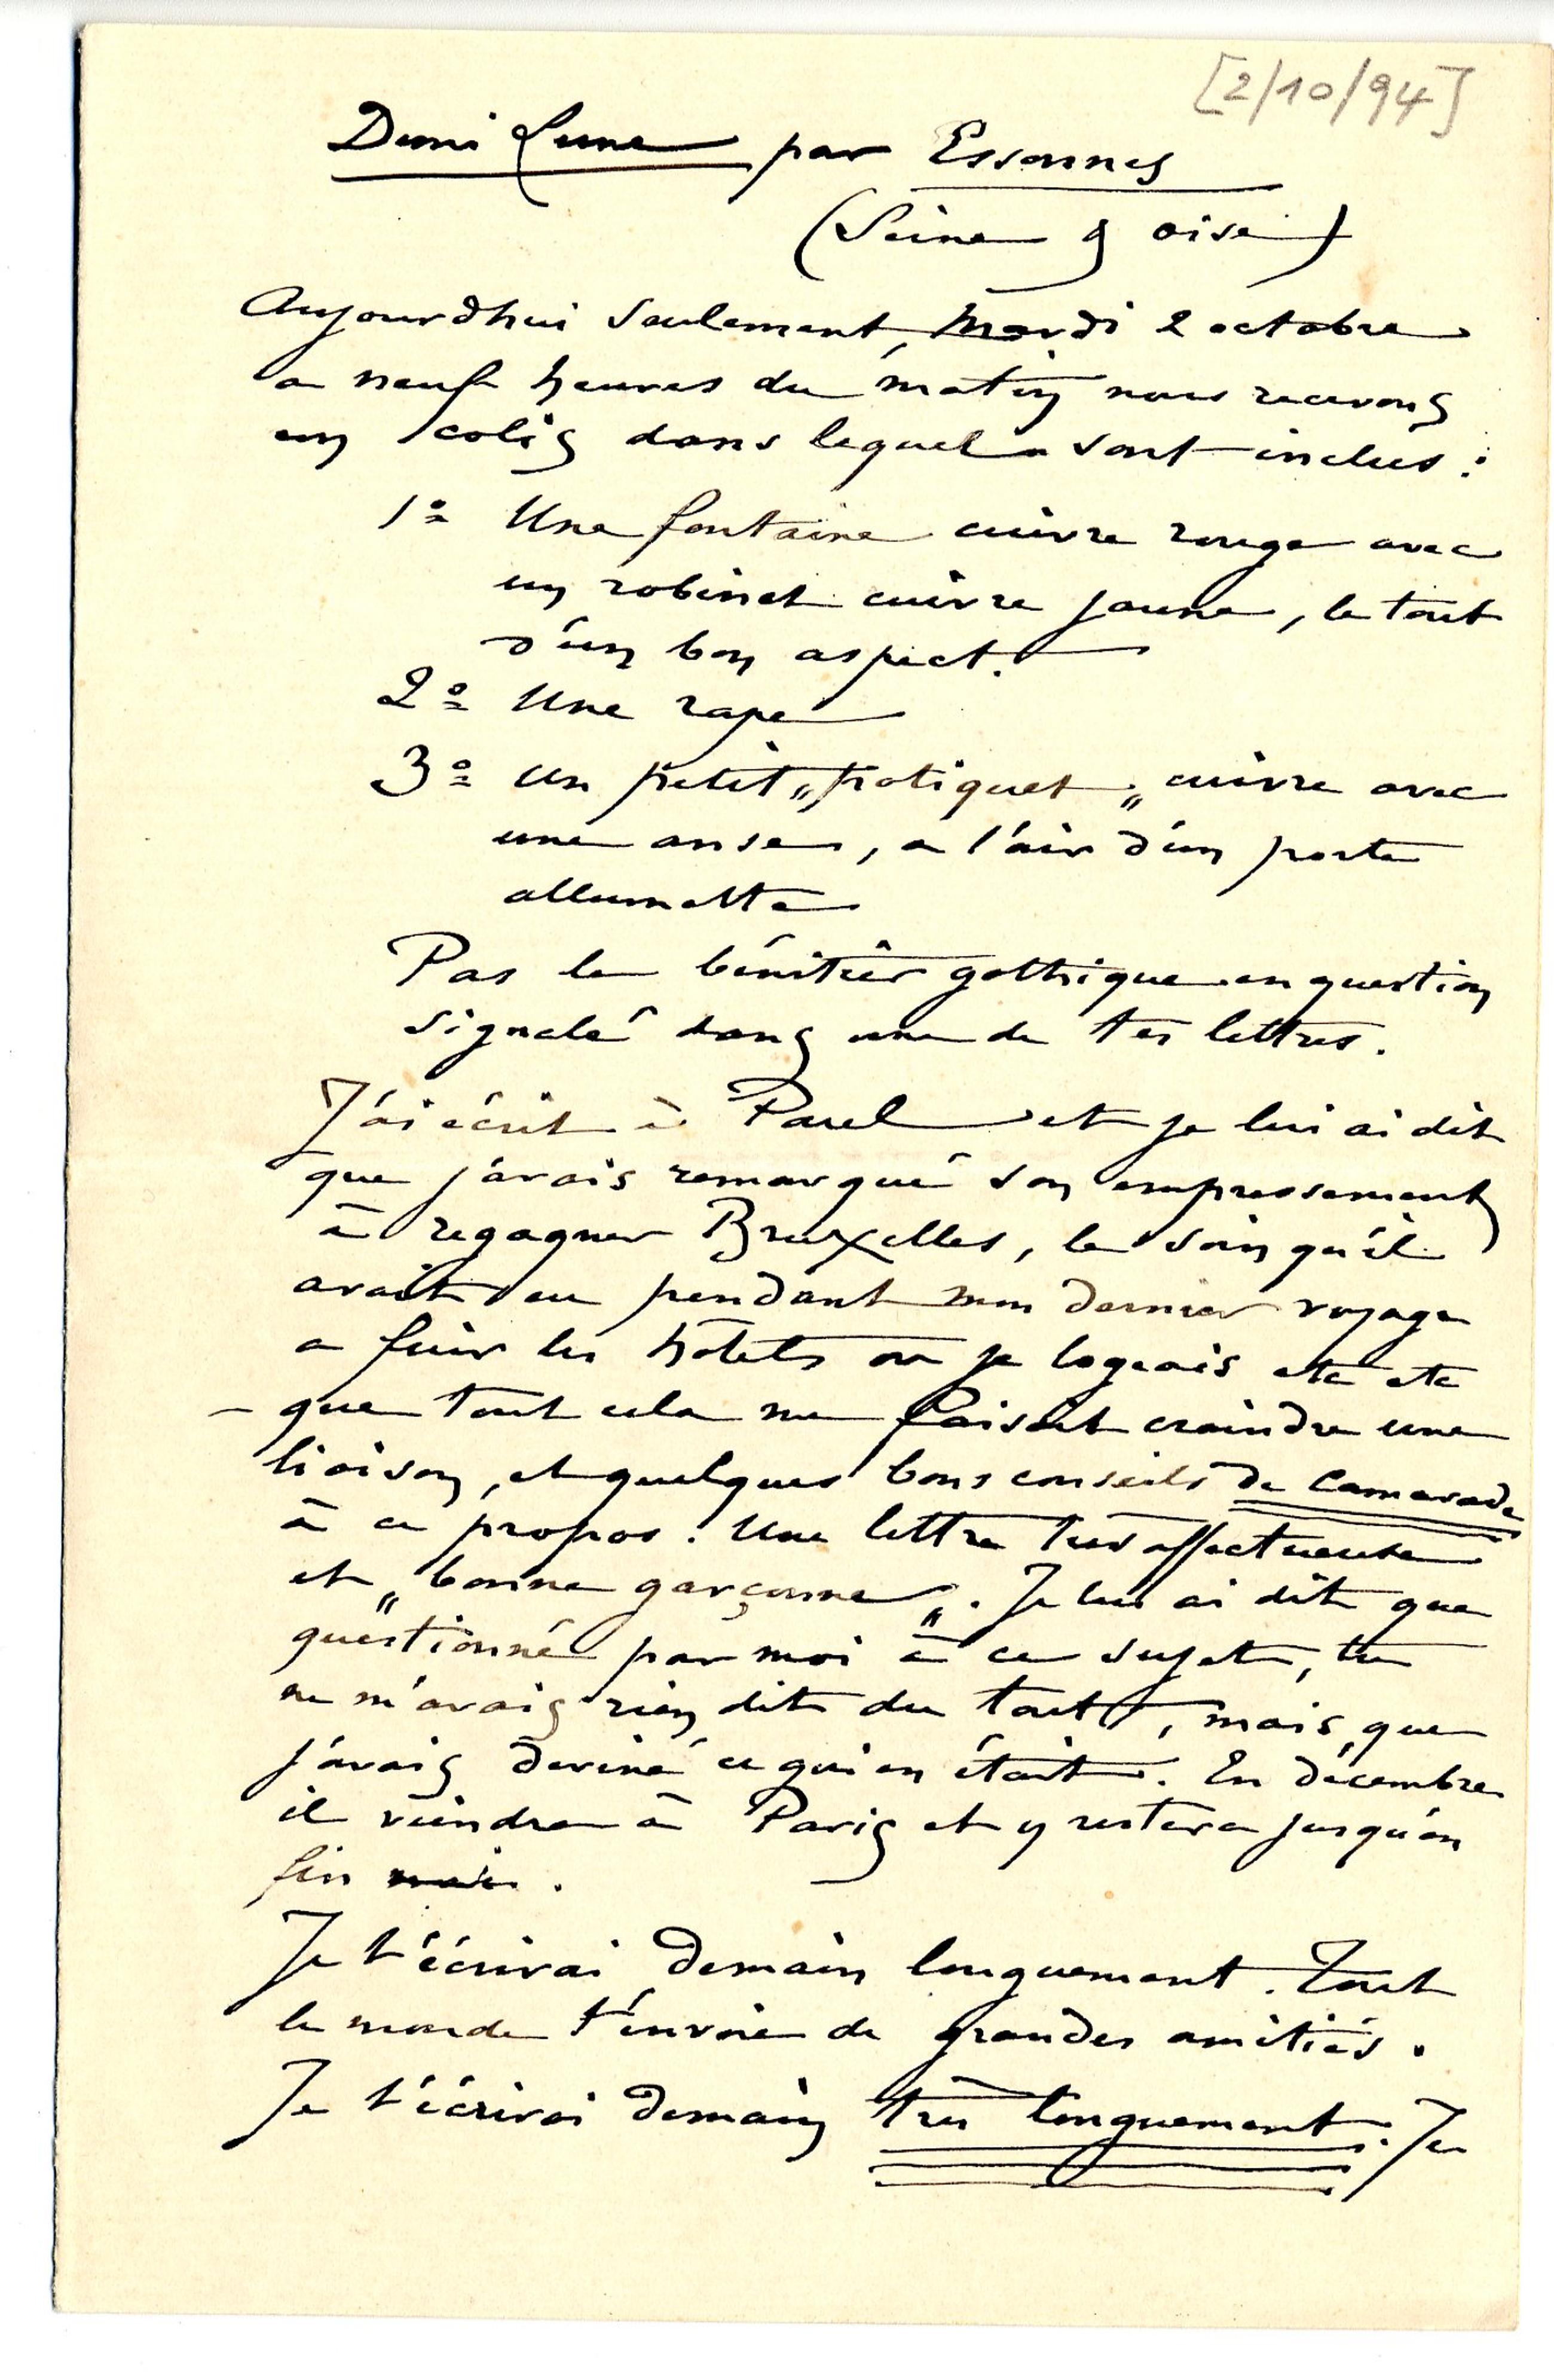 [2/10/94]
Demi Lune par Essonnes
(Seine & oise)
Aujourdhui seulement, Mardi 2 octobre
a neuf heures du matin nous recevons
un colis dans lequel sont inclus :
1º Une fontaine cuivre rouge avec
un robinet cuivre jaune, le tout
d'un bon aspect.
2º Une rape
3º Un petit „ potiquet „ cuivre avec
une anse, a l'air d'un porte
allumette
Pas le bénitier gothique en question
signalé dans une de tes lettres.
J'ai écrit à Paul et je lui ai dit
que j'avais remarqué son empressement
à regagner Bruxelles, le soin qu'il
avait eu pendant mon dernier voyage
a fuir les hôtels ou je logeais etc etc
– que tout cela me faisait craindre une
liaison, et quelques bons conseils de Camarade
à ce propos. Une lettre très affectueuse
et „ bonne garçonne „. Je lui ai dit que
questionné par moi à ce sujet, tu
ne m'avais rien dit du tout, mais que
j'avais deviné ce qui en était. En décembre
il viendra à Paris et y restera jusqu'en
fin mai.
Je t'écrirai demain longuement. Tout
le monde t'envoie de grandes amitiés.
Je t'écrirai demain très longuement. Je